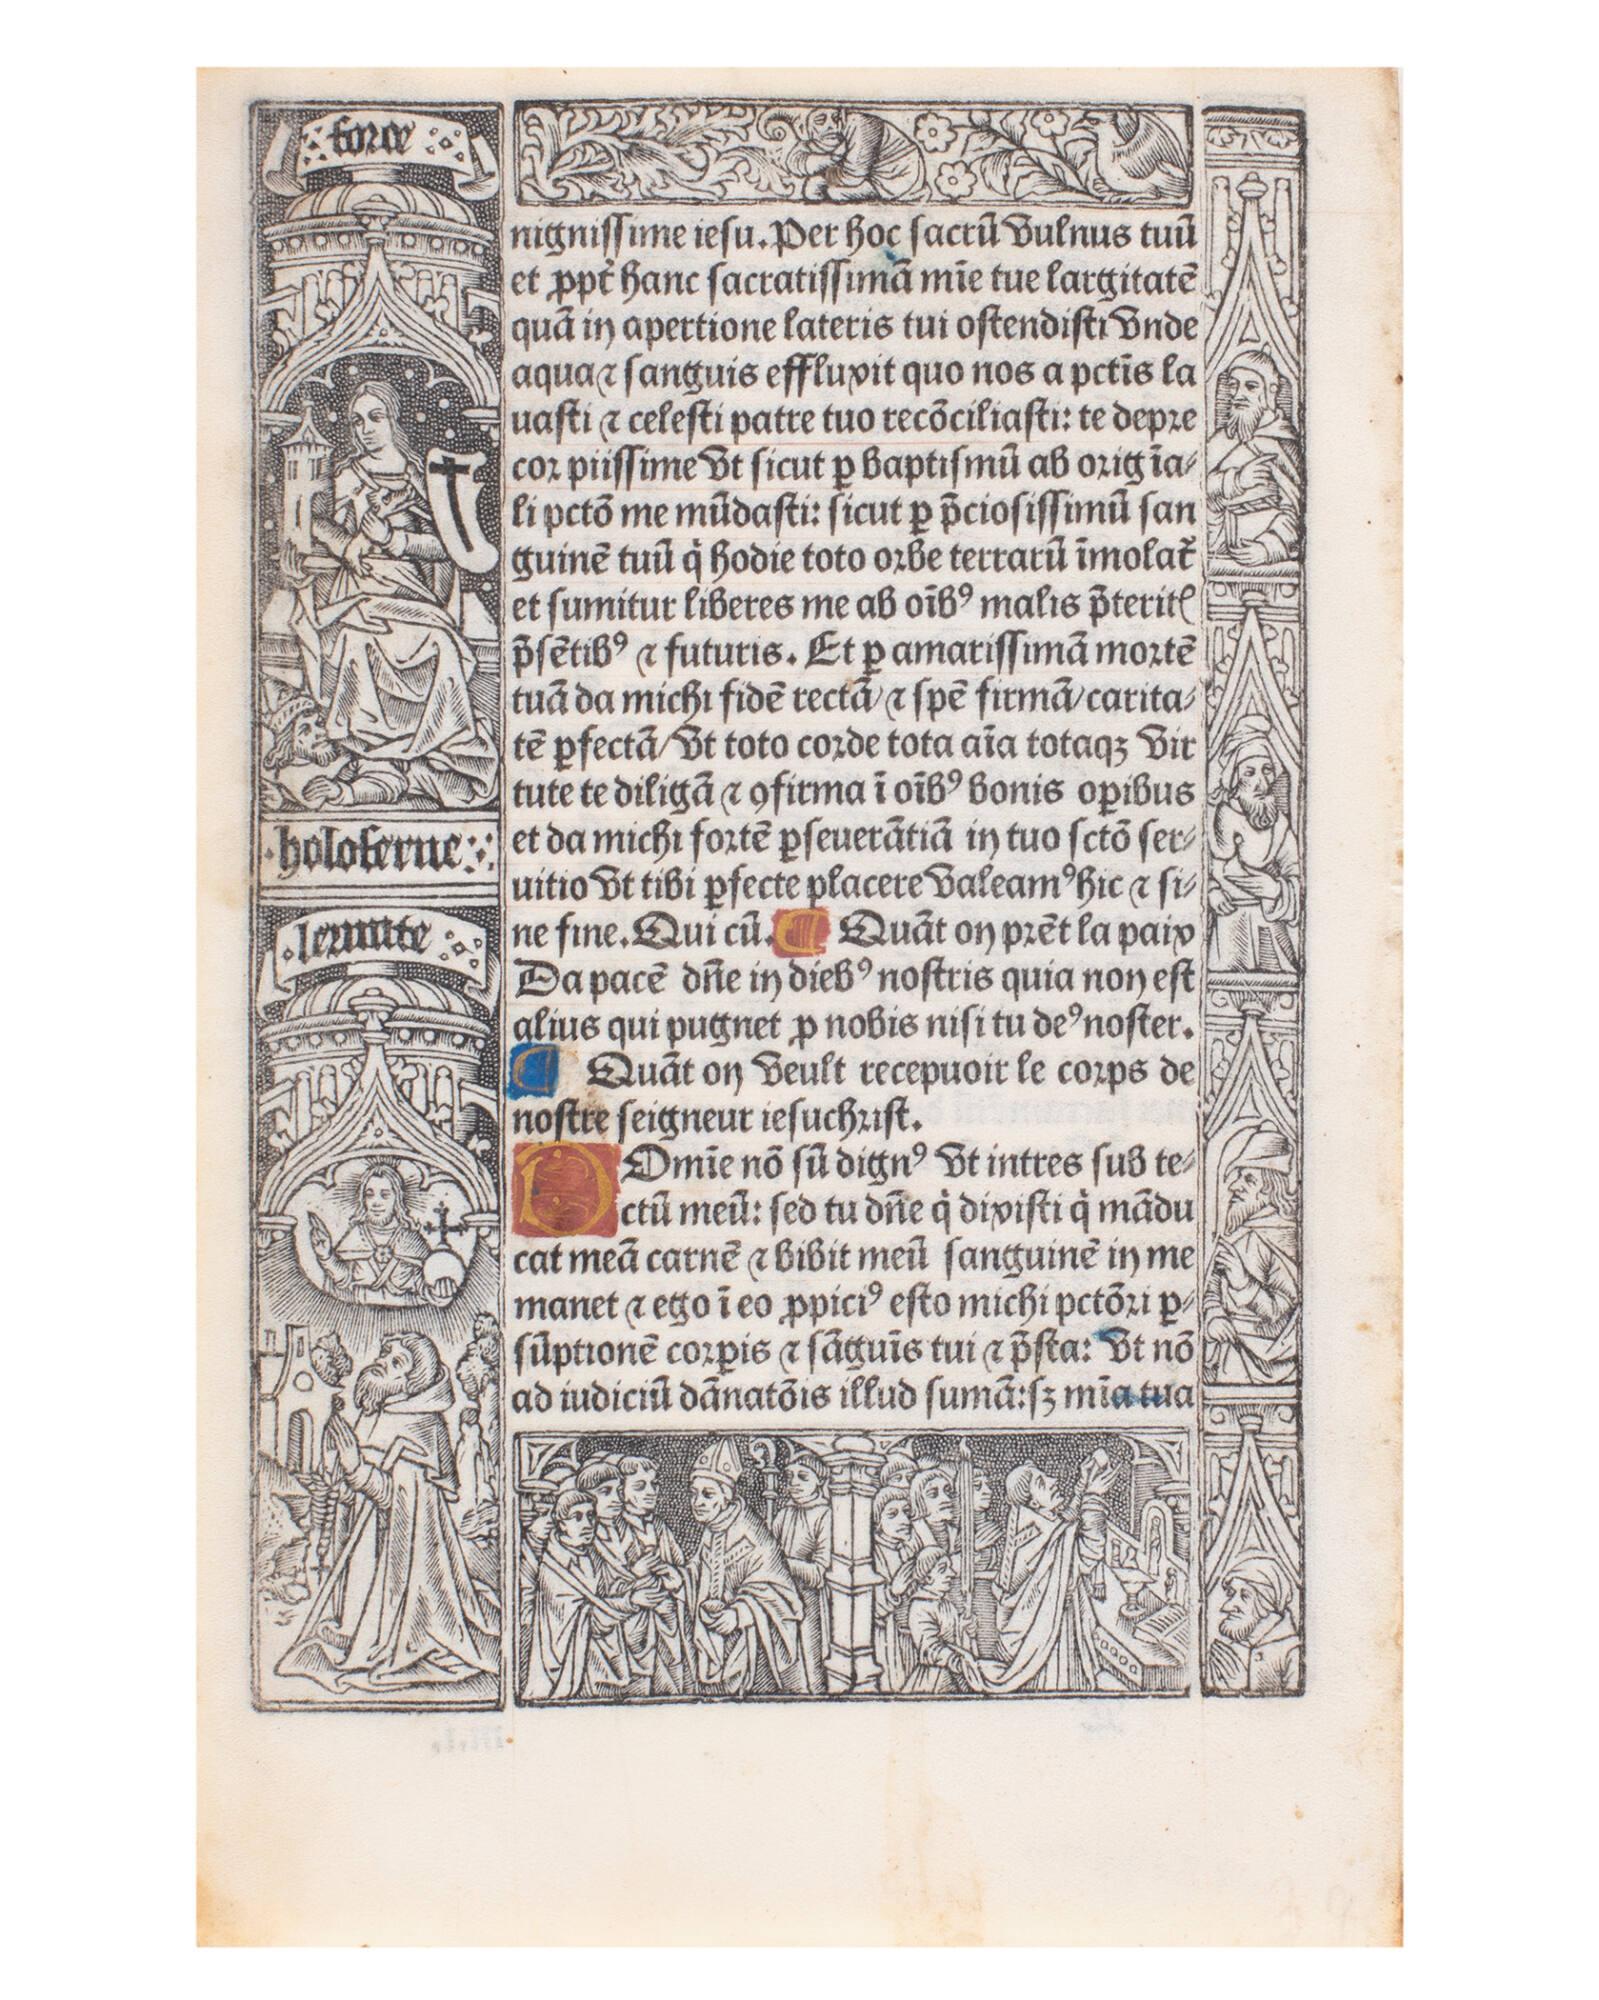 force
holoferne
lermite
nignissime iesu. Per hoc sacrū vulnus tuū
et ꝓpt̄ hanc sacratissimā mīe tue largitatē
quā in apertione lateris tui ostendisti vnde
aqua ⁊ sanguis effluxit quo nos a pctīs la
uasti ⁊ celesti patre tuo recōciliasti: te depꝛe
coꝛ piissime vt sicut ꝑ baptismū ab oꝛig īa⸗
li pctō me mūdasti: sicut ꝑ p̄ciosissimū san
guinē tuū q̇ hodie toto oꝛbe terrarū īmolat̄
et sumitur liberes me ab oībꝰ malis p̄teritꝭ
p̄sētibꝰ ⁊ futuris. Et ꝑ amarissimā moꝛtē
tuā da michi fidē rectā/ ⁊ spē firmā/ carita⸗
tē ꝑfectā/ vt toto coꝛde tota aīa totaqꝫ vir
tute te diligā ⁊ ꝯfirma ī oībꝰ bonis oꝑibus
et da michi foꝛtē ꝑseuerātiā in tuo sctō ser⸗
uitio vt tibi ꝑfecte placere valeamꝰ hic ⁊ si⸗
ne fine. Qui cū. ¶ Quāt on pꝛēt la paix
Da pacē dn̄e in diebꝰ nostris quia non est
alius qui pugnet ꝓ nobis nisi tu deꝰ noster.
¶ Quāt on veult recepuoir le coꝛps de
nostre seigneur iesuchꝛist.
D Omīe nō sū dignꝰ vt intres sub te⸗
ctū meū: sed tu dn̄e q̇ dixisti q̇ mādu
cat meā carnē ⁊ bibit meū sanguinē in me
manet ⁊ ego ī eo ꝓpiciꝰ esto michi pctōꝛi ꝑ⸗
sūptionē coꝛꝑis ⁊ sāguīs tui ⁊ p̄sta: vt nō
ad iudiciū dānatōis illud sumā: sꝫ mīa tua